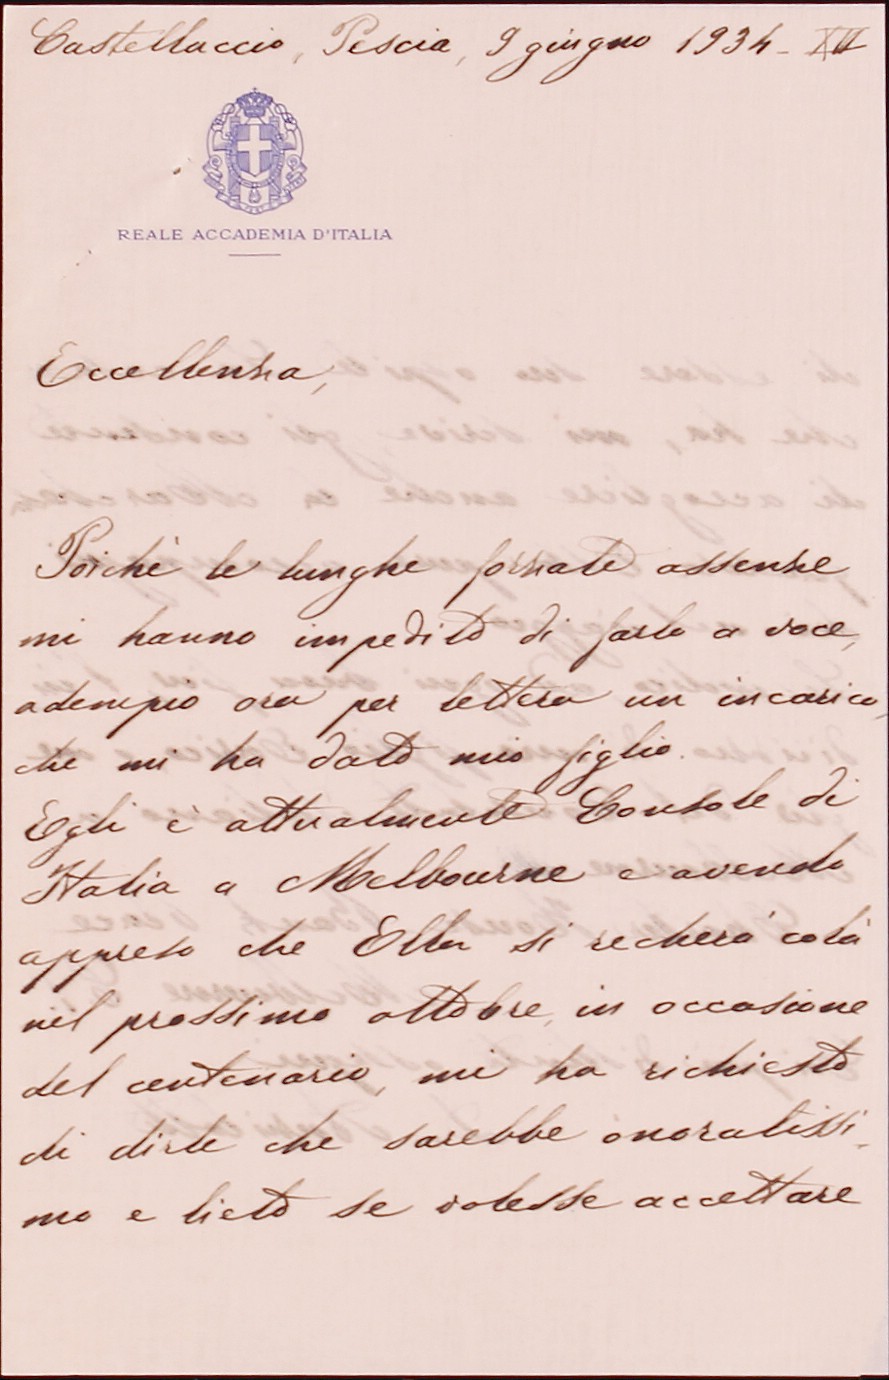 Castelluccio, Pescia, 9 giugno 1934 - XII
REALE ACCADEMIA D'ITALIA
Eccellenza,
Poichè le lunghe forzate assenze
mi hanno impedito di farlo a voce,
adempio ora per lettera un incarico,
che mi ha dato mio figlio.
Egli è attualmente Console di
Italia a Melbourne e avendo
appreso che Ella si recherà colà
nel prossimo ottobre, in occasione
del centenario, mi ha richiesto
di dirle che sarebbe onoratissi-
mo e lieto se volesse accettare